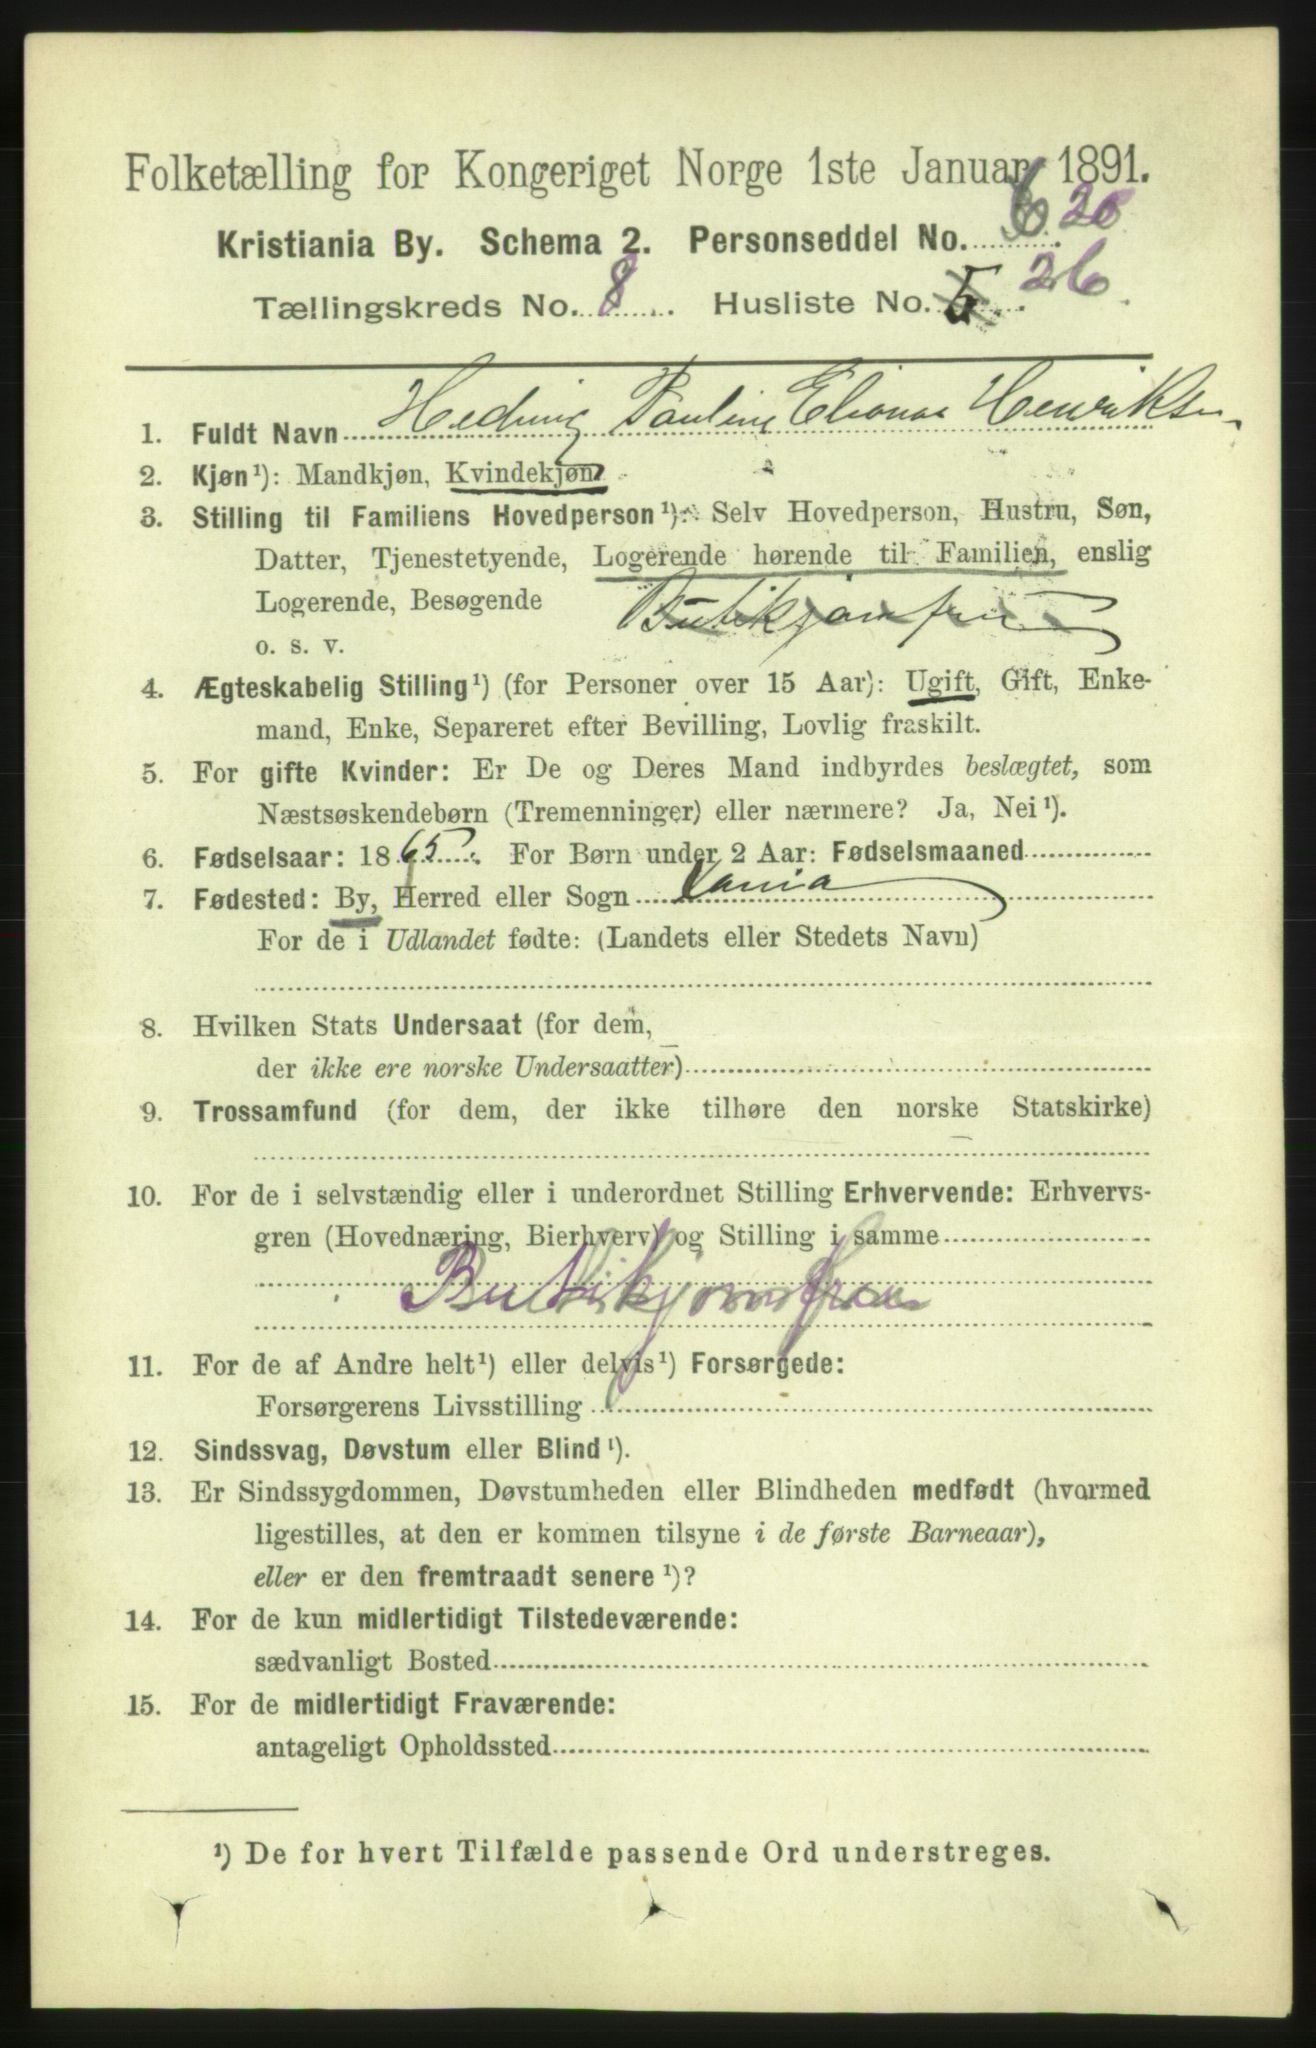 Folketælling for Kongeriget Norge 1ste Januar 1891.
Kristiania By. Schema 2. Personseddel No. 6 20
Tællingskreds No. 8. Husliste No. 5 26
1. Fuldt Navn Hedvig Pauline Elionar Henriksen
2. Kjøn¹): Mandkjøn, Kvindekjøn
3. Stilling til Familiens Hovedperson¹): Selv Hovedperson, Hustru, Søn,
Datter, Tjenestetyende, Logerende hørende til Familien, enslig
Logerende, Besøgende Butikjomfru
o. s. v.
4. Ægteskabelig Stilling¹) (for Personer over 15 Aar): Ugift, Gift, Enke-
mand, Enke, Separeret efter Bevilling, Lovlig fraskilt.
5. For gifte Kvinder: Er De og Deres Mand indbyrdes beslægtet, som
Næstsøskendebørn (Tremenninger) eller nærmere? Ja, Nei¹).
6. Fødselsaar: 1865. For Børn under 2 Aar: Fødselsmaaned
7. Fødested: By, Herred eller Sogn Xania
For de i Udlandet fødte: (Landets eller Stedets Navn)
8. Hvilken Stats Undersaat (for dem,
der ikke ere norske Undersaatter)
9. Trossamfund (for dem, der ikke tilhøre den norske Statskirke)
10. For de i selvstændig eller i underordnet Stilling Erhvervende: Erhvervs-
gren (Hovednæring, Bierhverv) og Stilling i samme
Butikjomfru
11. For de af Andre helt¹) eller delvis¹) Forsørgede:
Forsørgerens Livsstilling
12. Sindssvag, Døvstum eller Blind¹).
13. Er Sindssygdommen, Døvstumheden eller Blindheden medfødt (hvormed
ligestilles, at den er kommen tilsyne i de første Barneaar),
eller er den fremtraadt senere¹)?
14. For de kun midlertidigt Tilstedeværende:
sædvanligt Bosted
15. For de midlertidigt Fraværende:
antageligt Opholdssted
¹) De for hvert Tilfælde passende Ord understreges.